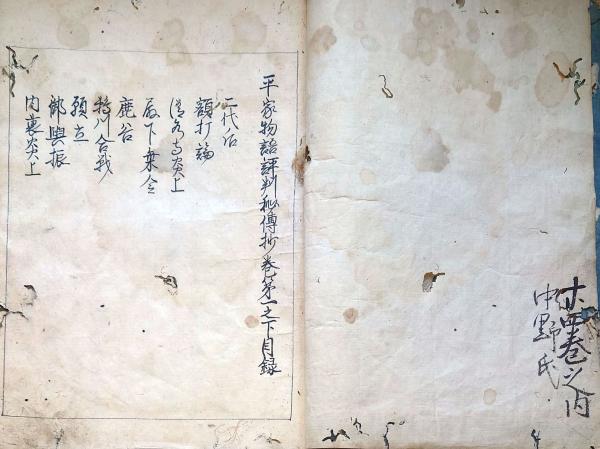 廿四巻之内
中野氏
平家物語評判秘傳抄巻第一之下目録
二代后
額打論
清水寺炎上
殿下乗合
鹿谷
鵜川合戦
願立
御輿振
内裏炎上